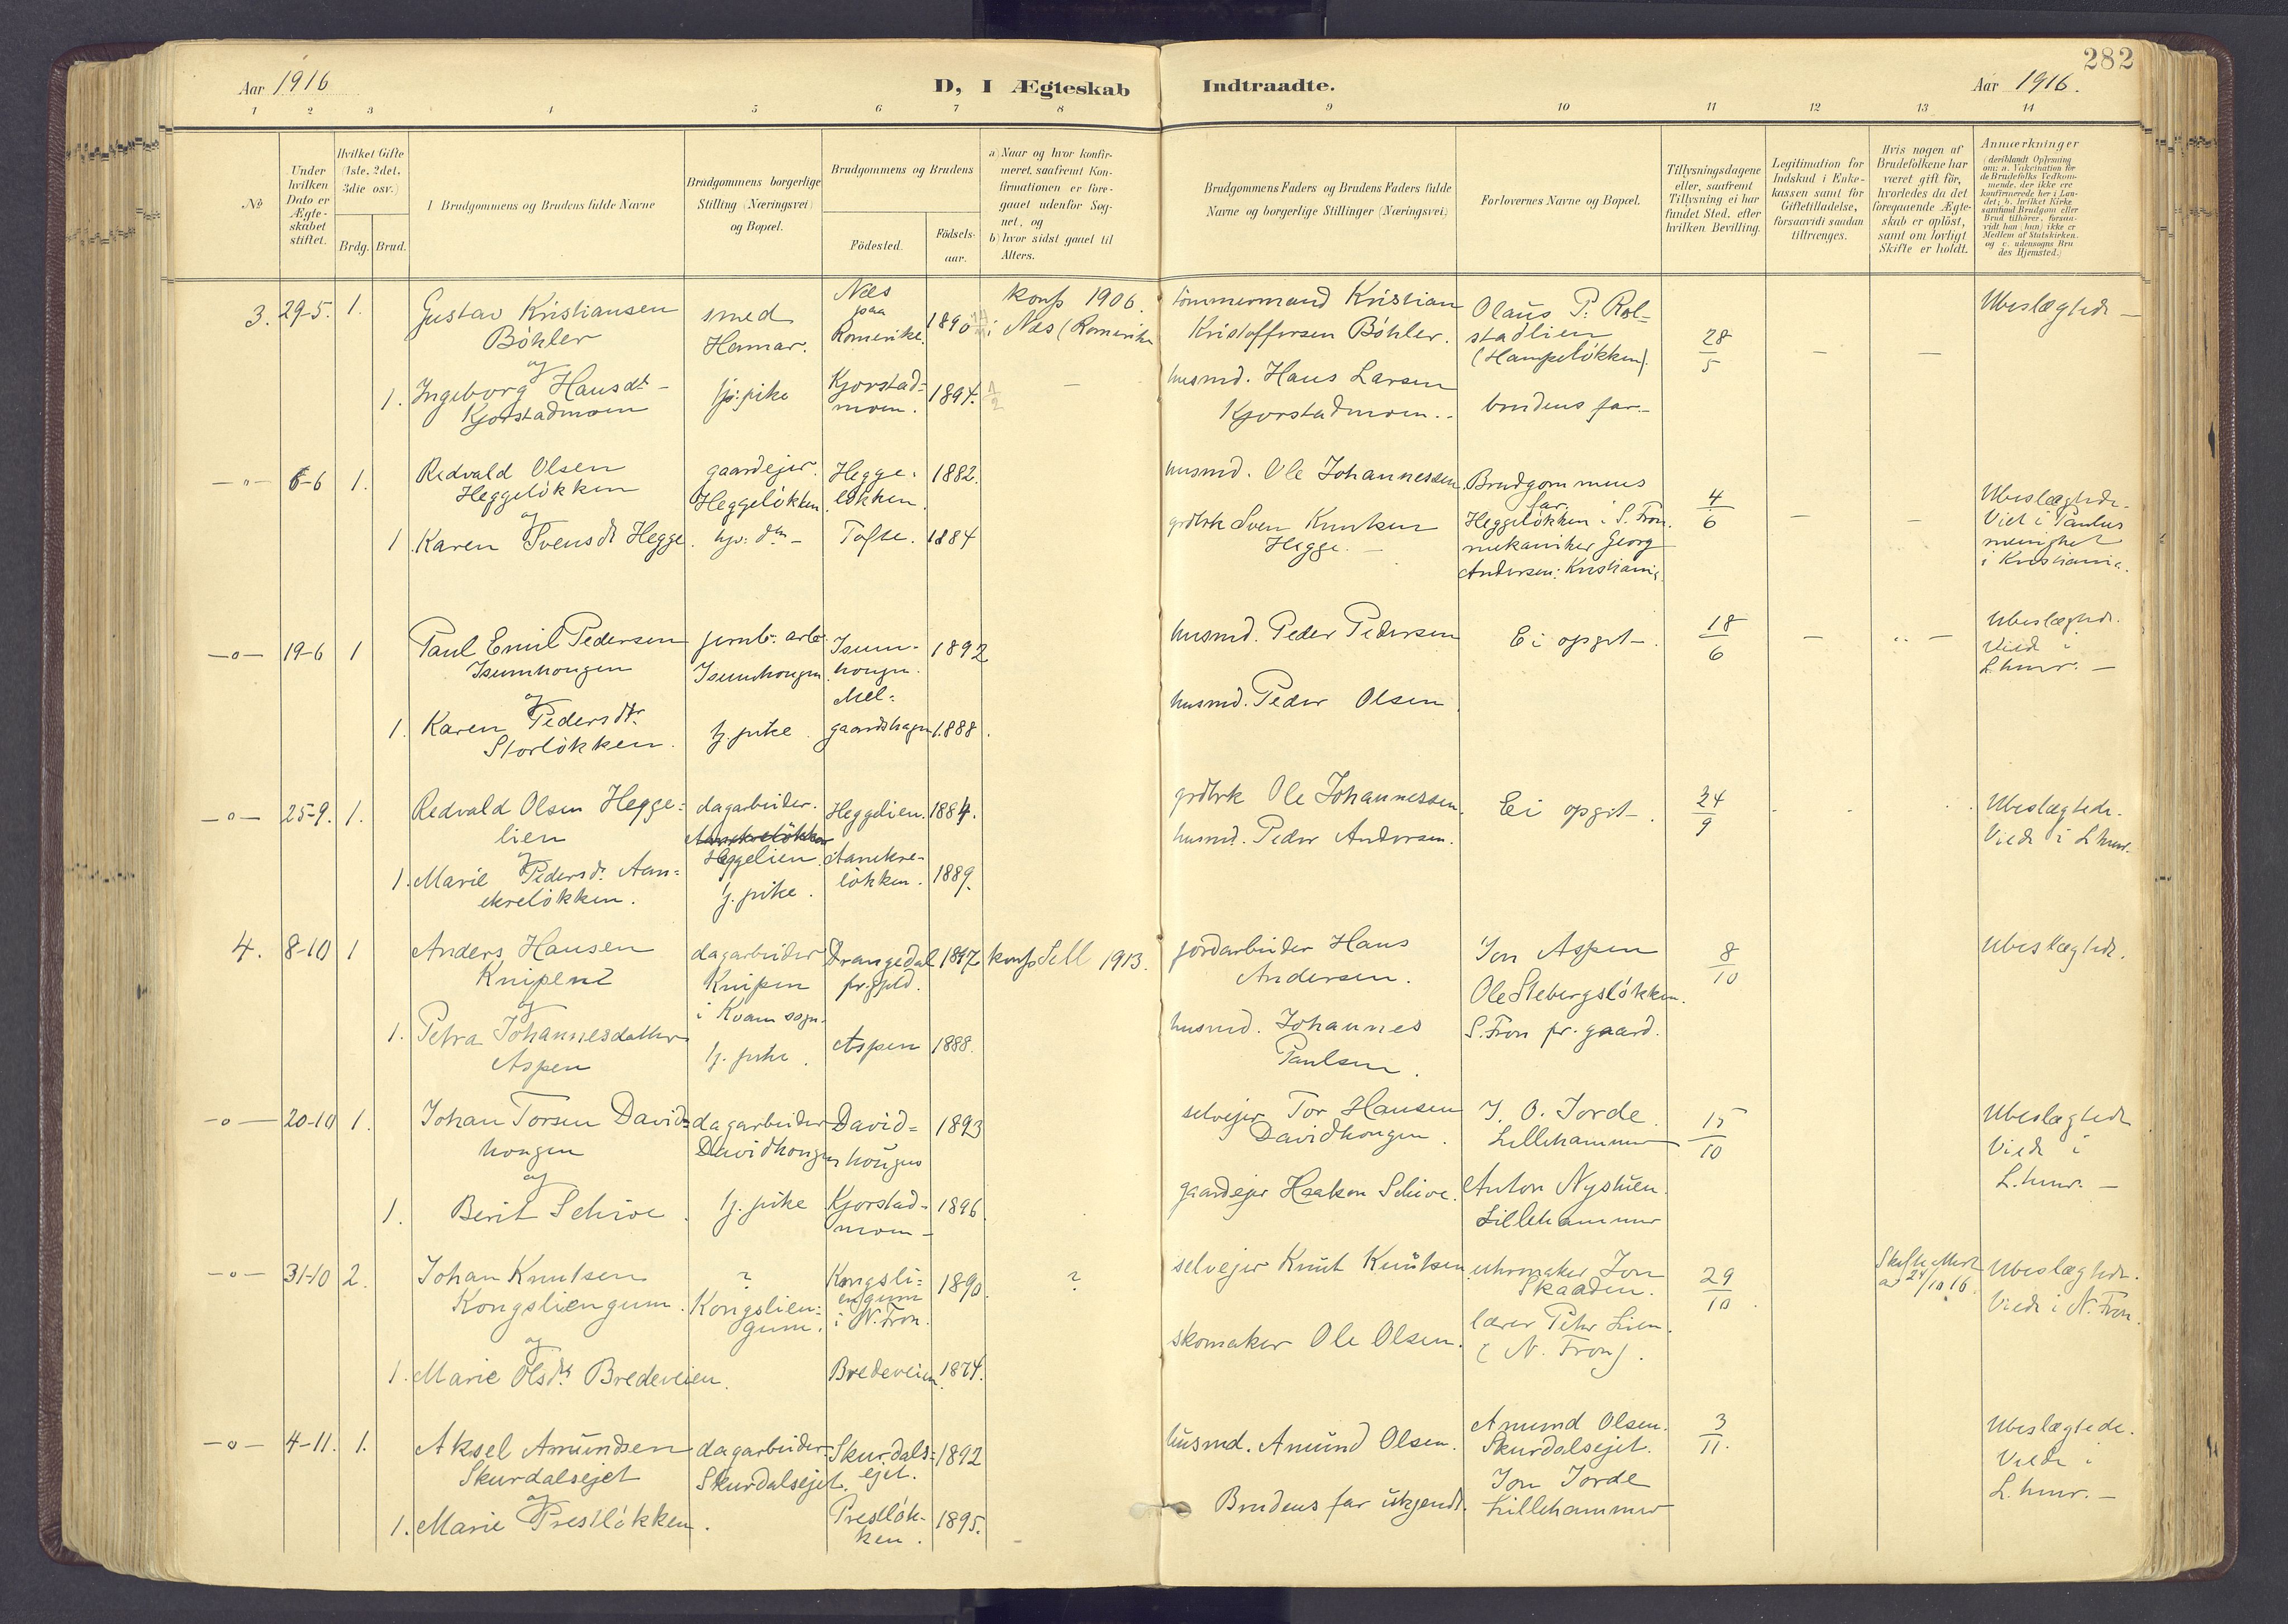 282
Aar 1916
D, I Ægteskab Indtraadte.
Aar 1916.
1 2 3 4 5 6 7 8 9 10 11 12 13 14
No
Under hvilken Dato er Ægteskabet stiftet.
Hvilket Gifte (1ste, 2det, 3die osv.)
Brdg. Brud.
I Brudgommens og Brudens fulde Navne
Brudgommens borgerlige Stilling (Næringsvei) og Bopæl.
Brudgommens og Brudens
Födested.
Födselsaar.
a) Naar og hvor konfirmeret, saafremt Konfirmationen er foregaaet udenfor Sognet, og
b) hvor sidst gaaet til Alters.
Brudgommens Faders og Brudens Faders fulde Navne og borgerlige Stillinger (Næringsvei)
Forlovernes Navne og Bopæl.
Tillysningsdagene eller, saafremt Tillysning ei har fundet Sted, efter hvilken Bevilling.
Legitimation for Indskud i Enkekassen samt for Giftetilladelse, forsaavidt saadan tiltrænges.
Hvis nogen af Brudefolkene har været gift för, hvorledes da det foregaaende Ægteskab er oplöst, samt om lovligt Skifte er holdt.
Anmærkninger
(deriblandt Oplysning om: a. Vakcination for de Brudefolks Vedkommende, der ikke ere konfirmerede her i Landet; b. hvilket Kirkesamfund Brudgom eller Brud tilhörer, forsaavidt han (hun) ikke er Medlem af Statskirken, og c. udensogns Brudes Hjemsted.)
3. 29-5. 1. Gustav Kristiansen
Böhler
og
smed
Hamar.
Næs
paa
Romerike.
1890
konf 1906.
i Næs (Romerike
tömmermand Kristian
Kristoffersen Böhler.
Olaus P. Rol-
stadlien
(Hampelökken).
28
5
— —
Ubeslægtede —
1. Ingeborg Hansdt-
Kjorstadmoen
tj. pike
Kjorstad=
moen.
1894.
—
husmd. Hans Larsen
Kjorstadmoen.
brudens far.
—"— 6-6 1. Redvald Olsen
Heggelökken
og
gaardejer.
Heggelökken.
Hegge-
lökken.
1882.
husmd. Ole Johannessen.
Brudgommens
far.
Heggelökken i S. Fron.
4
6
— —
Ubeslægtede.
Viet i Paulus
menighet
i Kristiania.
1. Karen Svensdt Hegge.
Tofte. 1884
grdbrk Sven Knutsen
Hegge. —
mekaniker Georg
Andersen: Kristiania.
—o— 19-6 1 Paul Emil Pedersen
Isumhougen
og
jernb. arb.
Isumhougen.
Isum-
hougn.
1892
husmd. Peder Pedersen
Ei opgit —.
18
6
— —
Ubeslægtede.
Vied i
L.hmr. —
1. Karen Pedersdtr
Storlökken.
tj. pike.
Mel-
gaardshagn
1888.
husmd. Peder Olsen.
—o— 25-9. 1. Redvald Olsen Hegge=
lien
og
dagarbeider.
Heggelien.
Heggelien. 1884.
grdbrk Ole Johannessen.
Ei opgit —.
24
9
Ubeslægtede.
Viede i Lhmr.
1. Marie Pedersdt. Aan=
ekrelökken.
tj. pike.
Aanekre-
lökken.
1889.
husmd. Peder Andersen.
4. 8-10 1 Anders Hansen
Knipen
og
dagarbeider
Knipen
i Kvam sogn.
Drangedal
pr.gjeld.
1897
konf Sell 1913.
jordarbeider Hans
Andersen.
Jon Aspen
Ole Stebergslökken.
S. Fron pr. gaard.
8
10
Ubeslægtede.
1. Petra Johannesdatter
Aspen
tj. pike.
Aspen 1888.
husmd. Johannes
Paulsen.
—o— 20-10 1. Johan Torsen David=
hougen
og
dagarbeider
Davidhougen
David=
hougen
1893
selvejer Tor Hansen
Davidhougen.
J. O. Jorde.
Lillehammer
15
10
Ubeslægtede
Viede i
L.hmr. —
1. Berit Schive.
tj. pike
Kjorstad-
moen —
1896.
gaardejer Haakon Schive.
Anton Nystuen.
Lillehammer
—o— 31-10 2. Johan Knutsen
Kongsliengum.
og
?
Kongslien=
gum.
Kongsli=
engum
i N. Fron.
1890.
?
selvejer Knut Knutsen
uhrmaker Jon
Skaaden.
29
10.
24/10 16.
Ubeslægtede.
Viede i N. Fron.
1. Marie Olsdt Bredeveien.
Bredeveien. 1874.
skomaker Ole Olsen.
lærer Peter Lien.
(N. Fron).
—o— 4-11. 1. Aksel Amundsen
Skurdalsejet
og
dagarbeider
Skurdalsejet.
Skurdals=
ejet.
1892
husmd. Amund Olsen.
Amund Olsen.
Skurdalsejet.
3
11.
Ubeslægtede.
Viede i
L.hmr. —
1. Marie Prestlökken.
Prestlök-
ken.
1895.
Brudens far ukjendt.
Jon Jorde
Lillehammer